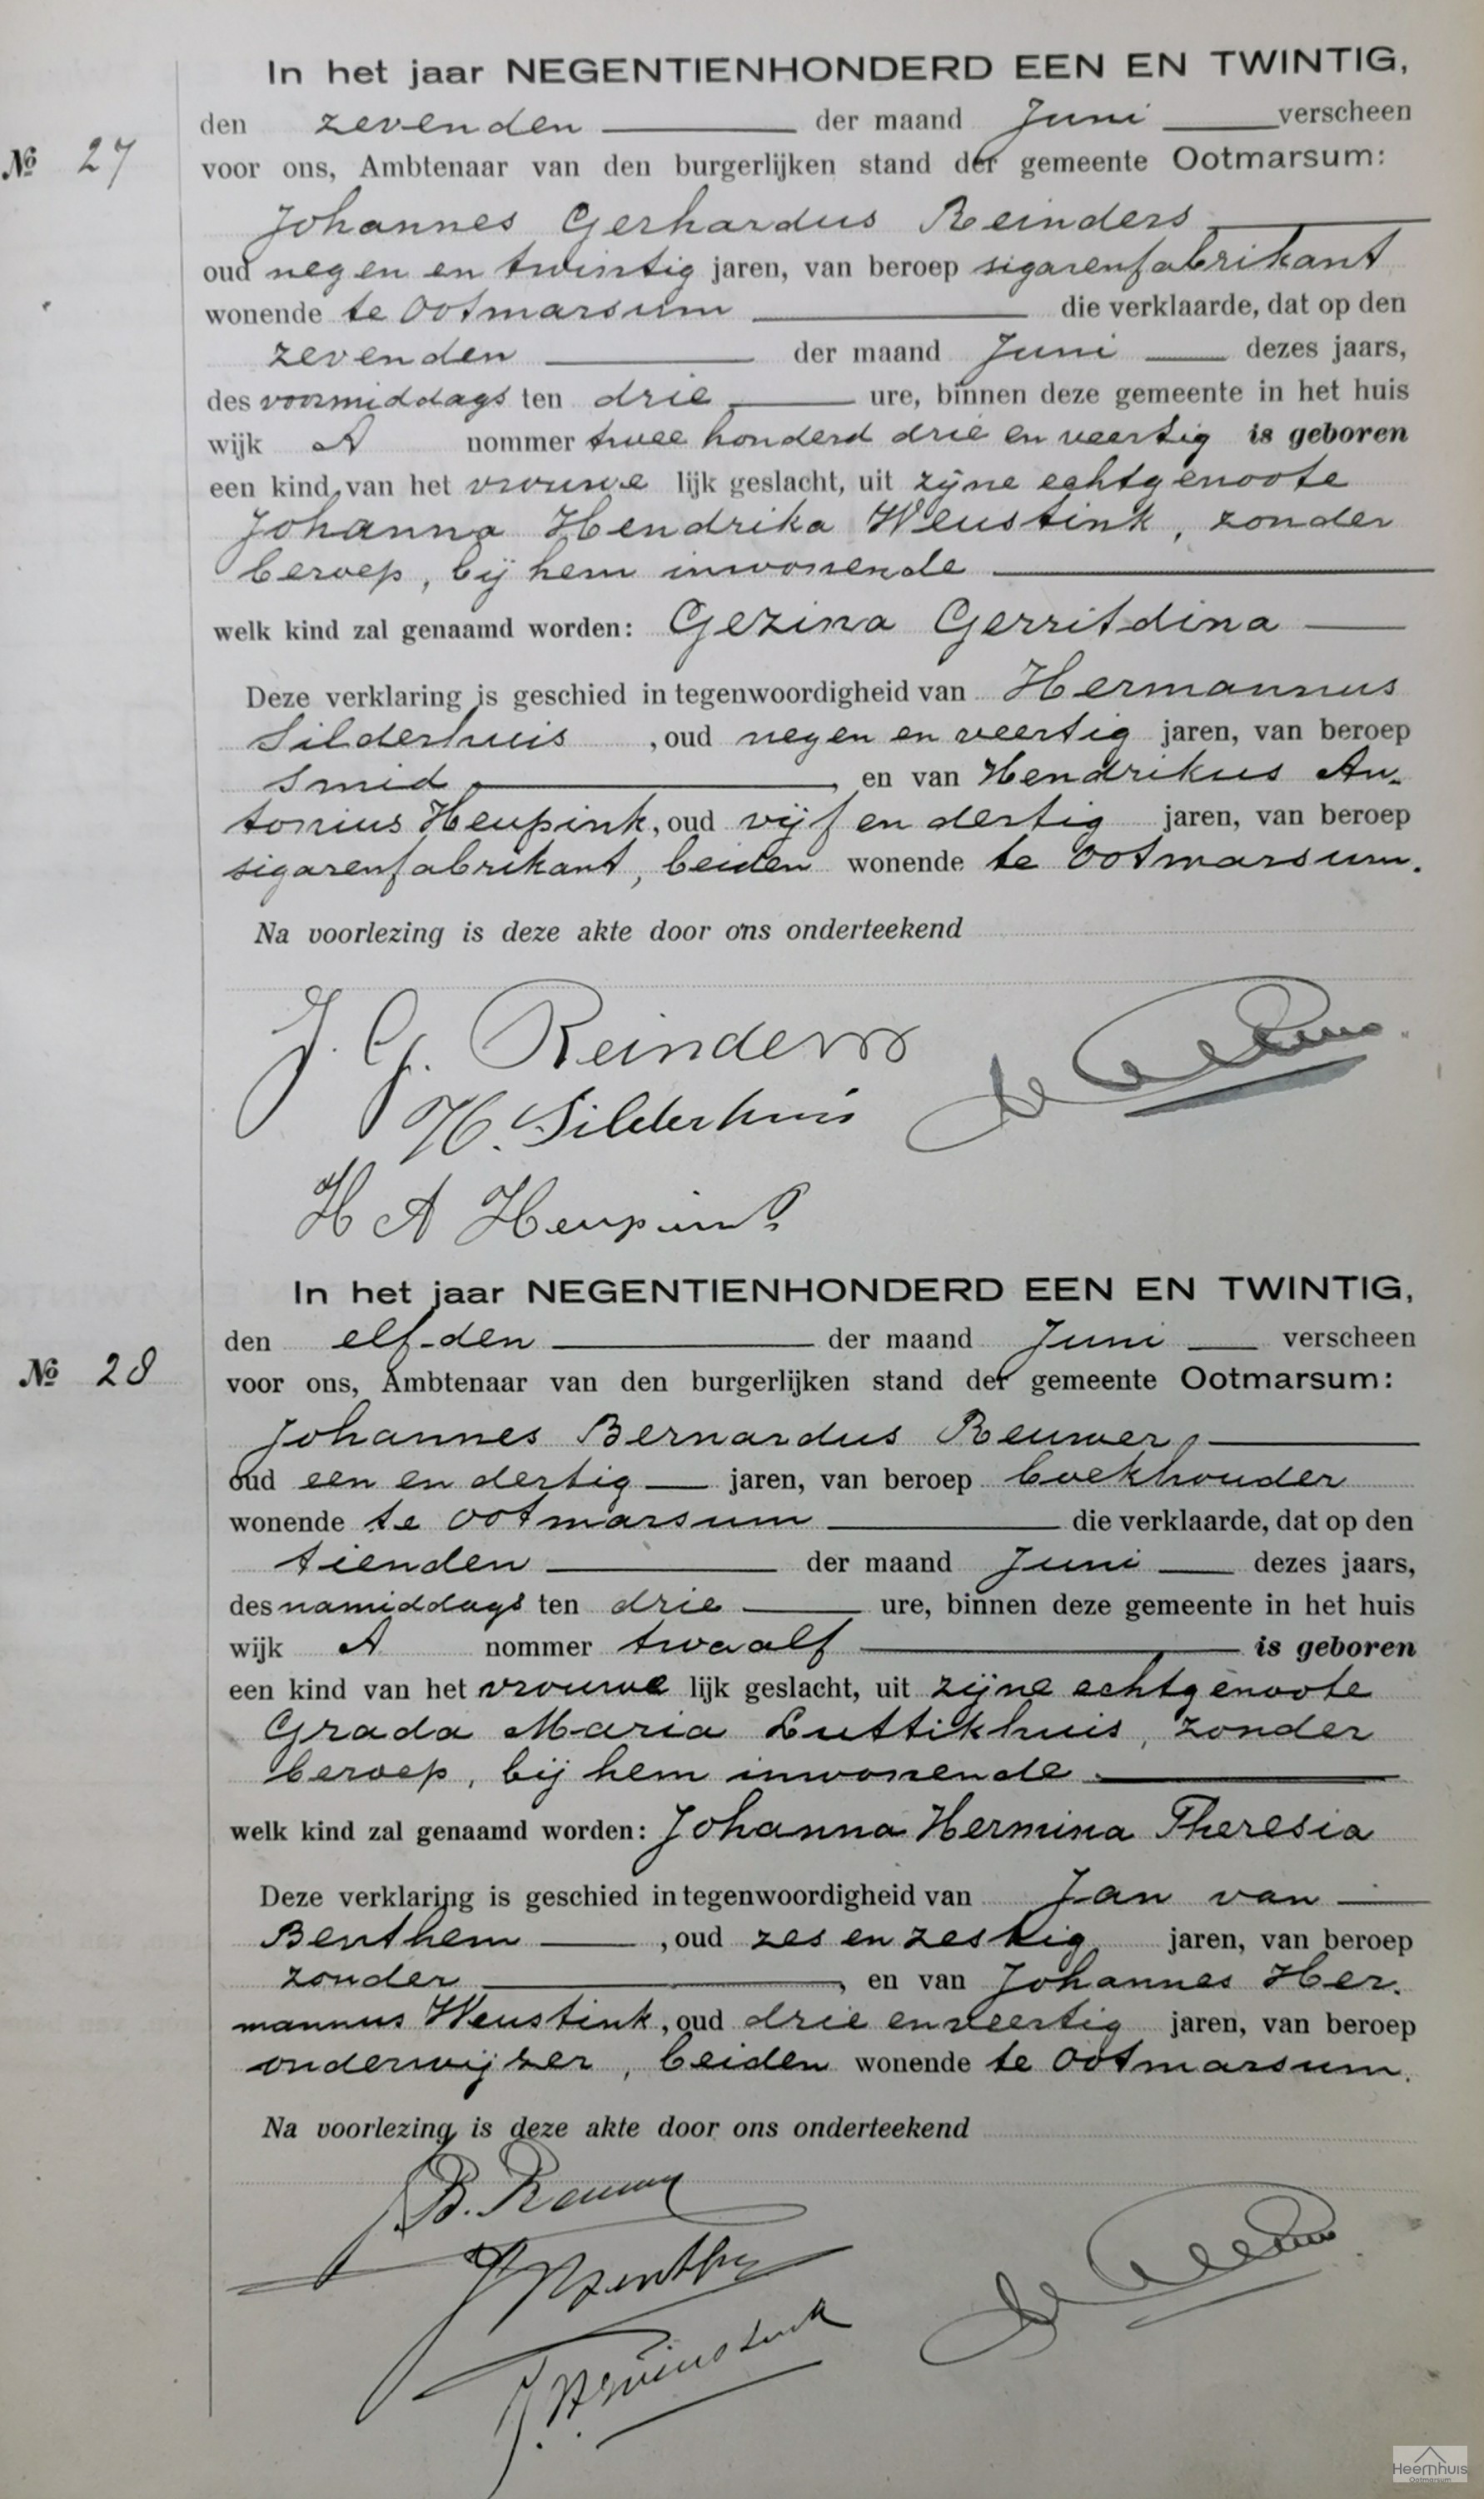 In het jaar NEGENTIENHONDERD EEN EN TWINTIG,
den zevenden der maand Juni verscheen
№ 27
voor ons, Ambtenaar van den burgerlijken stand der gemeente Ootmarsum:
Johannes Gerhardus Reinders
oud negen en twintig jaren, van beroep sigarenfabrikant
wonende te Ootmarsum die verklaarde, dat op den
zevenden der maand Juni dezes jaars,
des voormiddags ten drie ure, binnen deze gemeente in het huis
wijk A nommer twee honderd drie en veertig is geboren
een kind van het vrouwe lijk geslacht, uit zijne echtgenoote
Johanna Hendrika Weustink, zonder
beroep, bij hem inwonende
welk kind zal genaamd worden: Gezina Gerritdina
Deze verklaring is geschied in tegenwoordigheid van Hermannus
Silderhuis , oud negen en veertig jaren, van beroep
smid , en van Hendrikus An-
tonius Heupink, oud vijf en dertig jaren, van beroep
sigarenfabrikant, beiden wonende te Ootmarsum.
Na voorlezing is deze akte door ons onderteekend
J. G. Reinders
H. Silderhuis
H A Heupink
In het jaar NEGENTIENHONDERD EEN EN TWINTIG,
den elfden der maand Juni verscheen
№ 28
voor ons, Ambtenaar van den burgerlijken stand der gemeente Ootmarsum:
Johannes Bernardus Reuwer,
oud een en dertig jaren, van beroep boekhouder
wonende te Ootmarsum die verklaarde, dat op den
tienden der maand Juni dezes jaars,
des namiddags ten drie ure, binnen deze gemeente in het huis
wijk A nommer twaalf is geboren
een kind van het vrouwe lijk geslacht, uit zijne echtgenoote
Grada Maria Luttikhuis, zonder
beroep, bij hem inwonende
welk kind zal genaamd worden: Johanna Hermina Theresia
Deze verklaring is geschied in tegenwoordigheid van Jan van
Benthem , oud zes en zestig jaren, van beroep
zonder , en van Johannes Her-
mannus Weustink, oud drie en veertig jaren, van beroep
onderwijzer, beiden wonende te Ootmarsum.
Na voorlezing is deze akte door ons onderteekend
J B. Reuwer
J v Benthem
J. H Weustink
Heemhuis
Ootmarsum